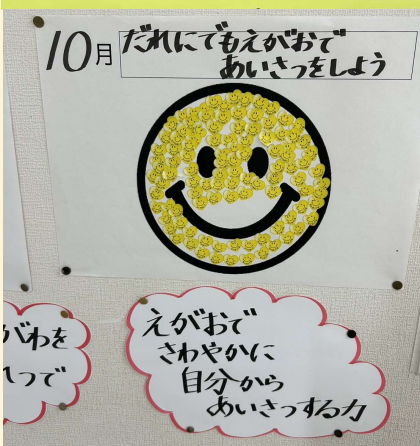 10月
だれにでもえがおで
あいさつをしよう
がわを
つで
えがおで
さわやかに
自分から
あいさつする力